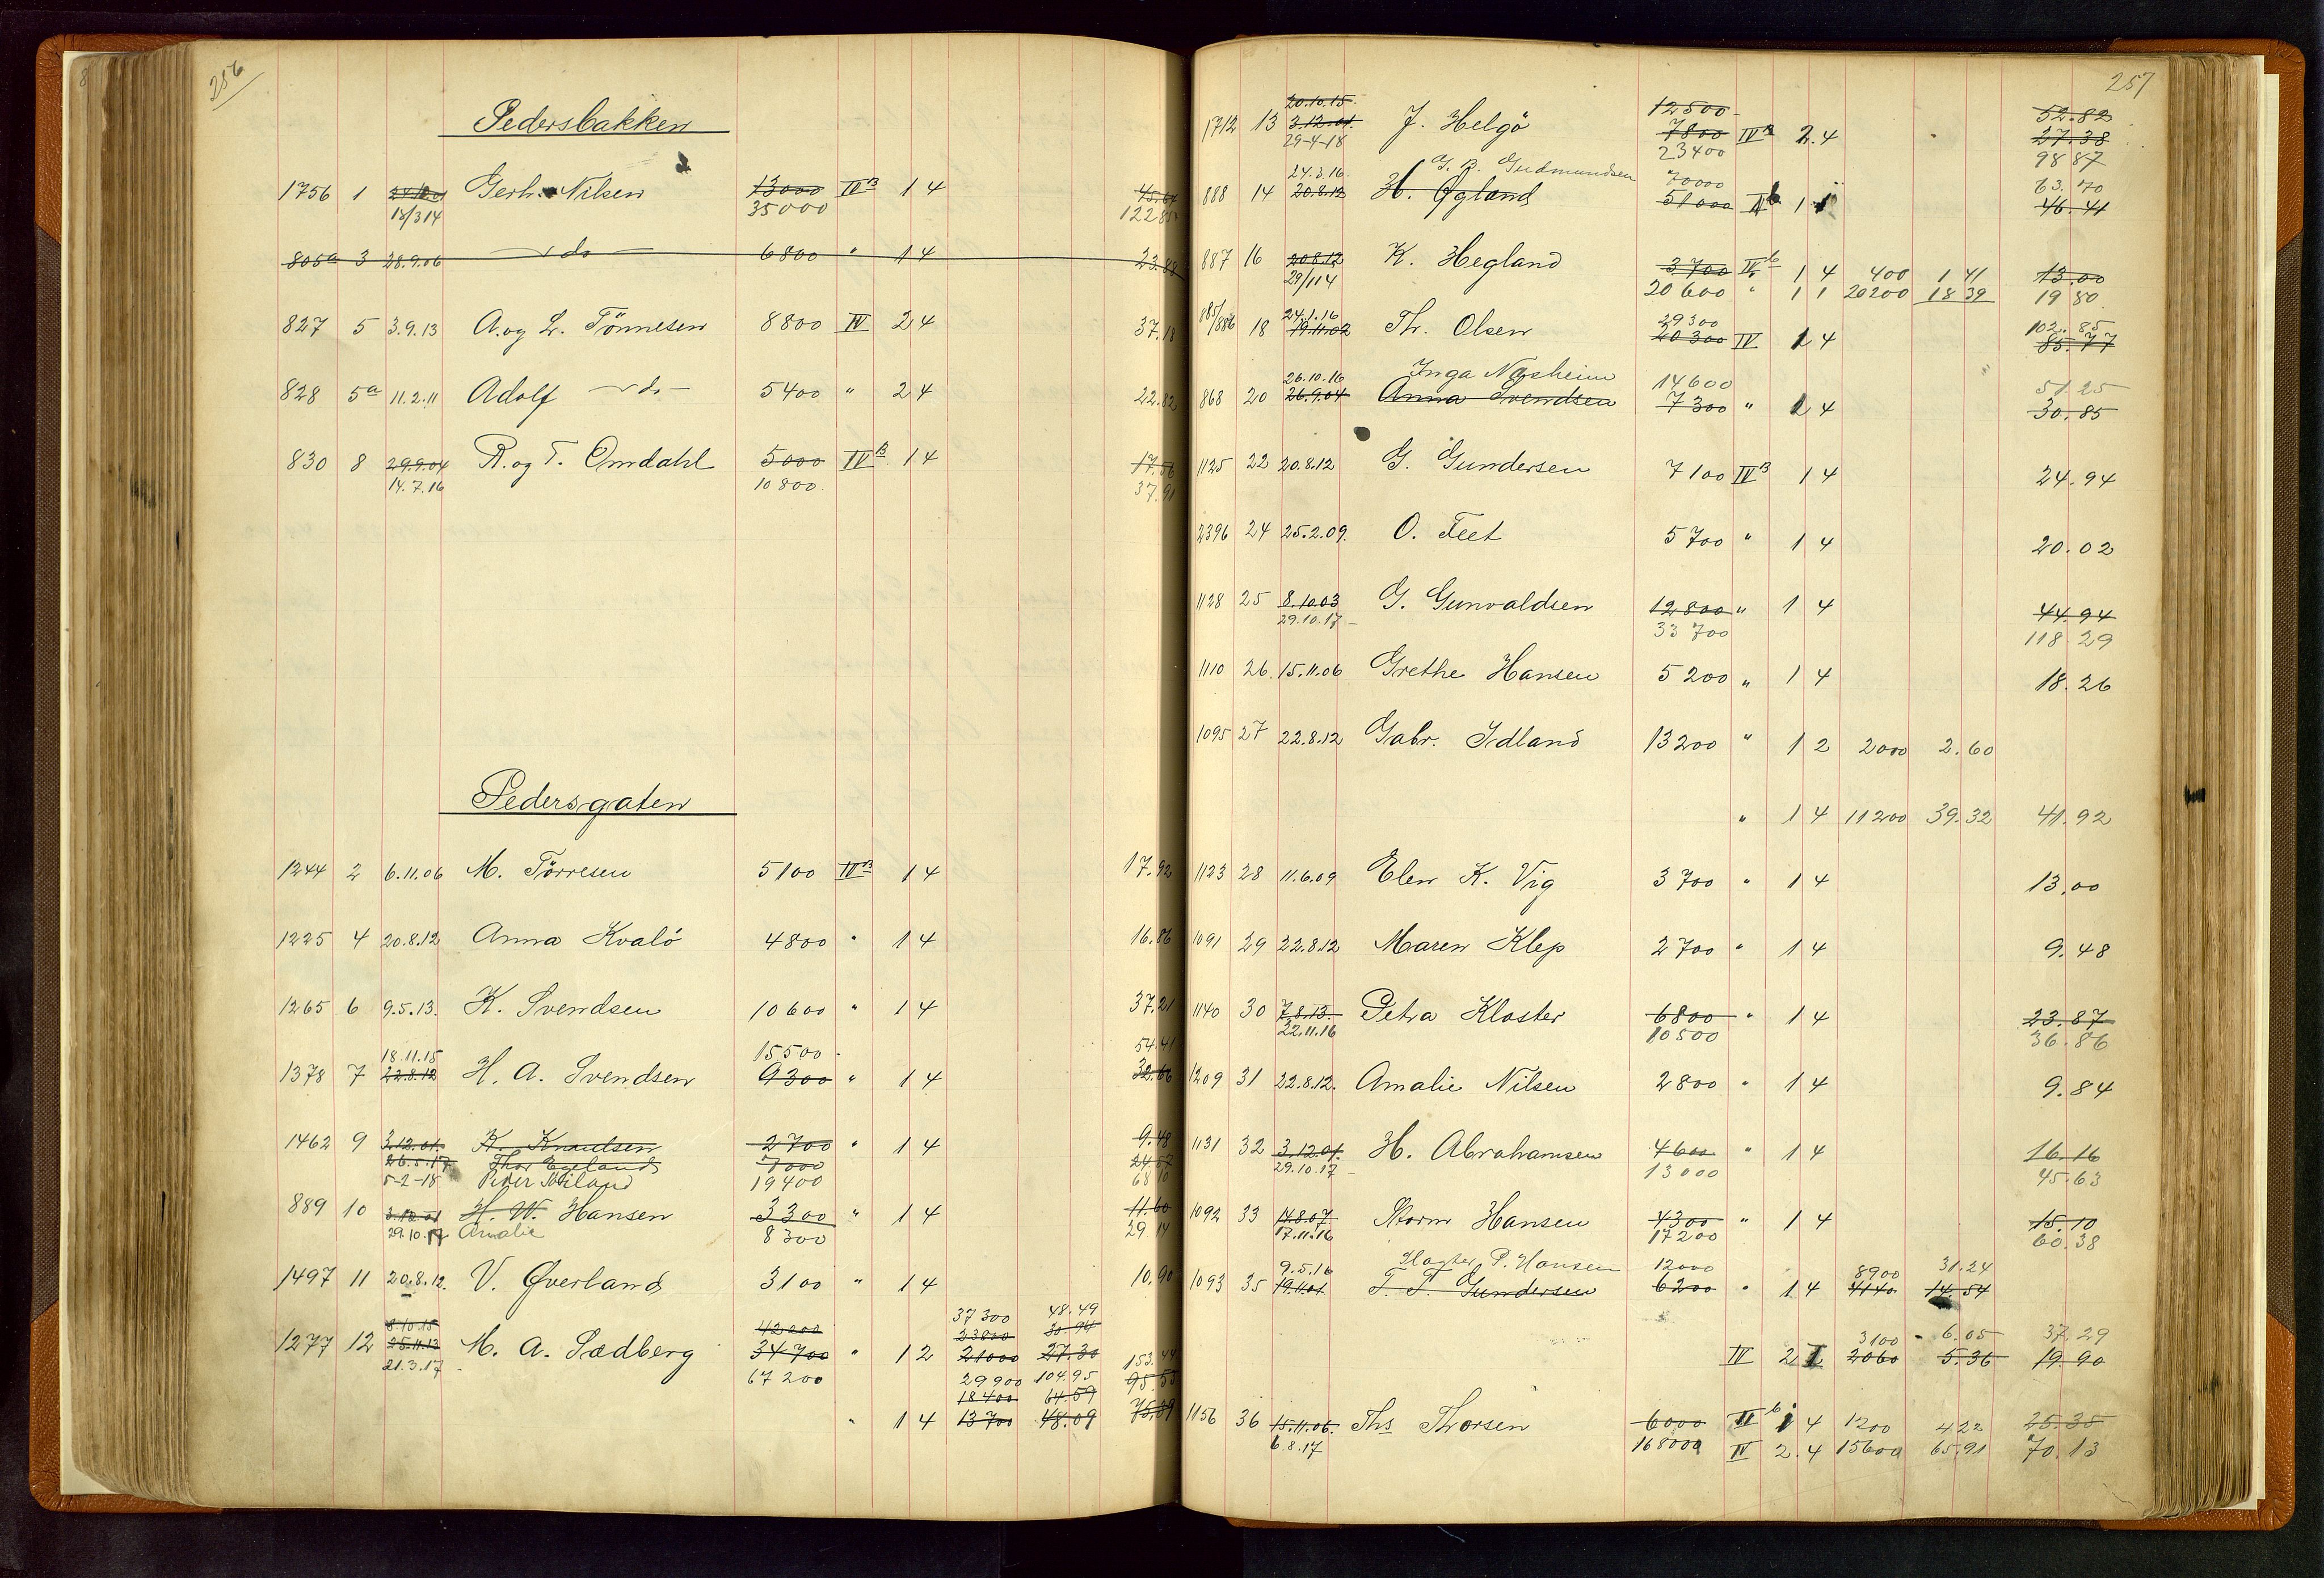 256
Pedersbakken
1756 1 Gerh. Nilsen 13000 IVB 1 4 45.64
18/3 14 35000 122.85
805a 3 28.9.06 do 6800 " 1 4 23.88
827 5 3.9.13 A. og L. Tönnesen 8800 IV 2 4 37.18
828 5a 11.2.11 Adolf do 5400 " 2 4 22.82
830 8 29.9.04 R. og T. Omdahl 5000 IVB 1 4 17.56
14.7.16 10800. 37.91
Pedersgaten
1244 2 6.11.06 M. Törresen 5100 IVB 1 4 17.92
1225 4 20.8.12 Anna Kvalö 4800 " 1 4 16.86
1265 6 9.5.13. K. Svendsen 10600 " 1 4 37.21
18.11.15 15500 54.41
1378 7 22.8.12 H. A. Svendsen 9300 " 1 4 32.66
1462 9 3.12.01. K. Knudsen 2700 " 1 4 9.48
26.5.17 Thor Egeland 7000 24.57
5-2-18 Peder 19400 68 10
889 10 3.12.01 H. W. Hansen 3300 " 1 4 11.60
29.10.17 Amalie 8300 29.14
1497 11 20.8.12. V. Øverland 3100 " 1 4 10.90
37300 48.49
8.10.15 42200 23800 30.94
1277 12 25.11.13 M. A. Sædberg 34700 " 1 2 21000 27.30 153.44
21.3.17 67200 29900 104.95 95.53
18400 64.59
" 1 4 13700 48.09 75.39
257
20.10.15. 12500 52.82
1712 13 3.12.01. J. Helgö 7800 IVB 2.4 27.38
29-4-18 23400 98 87
24.3.16. G. B. Gudmundsen 70000 63.70
888 14 20.8.12 H. Øgland 51000 IIb 1 1 46.41
887 16 20.8.12 K. Hegland 3700 IVb 1 4 400 1 41 13.00
29/1 14 20600 " 1 1 20200 18 39 19 80.
885/886 24.1.16 29300 102.85
18 19.11.02 Th. Olsen 20300 IV 1 4 85.77
26.10.16 Inga Næsheim 14600 51.25
868 20 26.9.04 Anna Svendsen 7300 " 1 4 30.85
1125 22 20.8.12 G. Gundersen 7100 IVB 1 4 24.94
2396 24 25.2.09. O. Teet 5700 " 1 4 20.02
1128 25 8.10.03 G. Gunvaldsen 12800 " 1 4 44.94
29.10.17 33700 118.29
1110 26 15.11.06 Grethe Hansen 5200 " 1 4 18.26
1095 27 22.8.12 Gabr. Idland 13200 " 1 2 2000 2.60
" 1 4 11200 39.32 41.92
1123 28 11.6.09 Elen K. Vig 3700 " 1 4 13.00
1091 29 22.8.12 Maren Klep 2700 " 1 4 9.48
1140 30 7.8.13. Petra Kloster 6800 " 1 4 23.87
22.11.16 10500 36.86
1209 31 22.8.12. Amalie Nilsen 2800 " 1 4 9.84
1131 32 3.12.01. H. Abrahamsen 4600 " 1 4 16.16
29.10.17 13000 45.63
1092 33 14.8.07 Storm Hansen 4300 " 1 4 15.10
17.11.16 17200 60.38
9.5.16 P. Hansen 12000 8900 31.24
1093 35 19.11.01 T. T. Gundersen 6200 " 1 4 4140 14.54
3100 6.05 37.29
IV 2 1 2060 5.36 19.90
1156 36 15.11.06. Ths Thorsen 6000 IVb 1 4 1200 4 22 25.35
6.8.17 16800 IV 2.4 15600 65.91 70.13